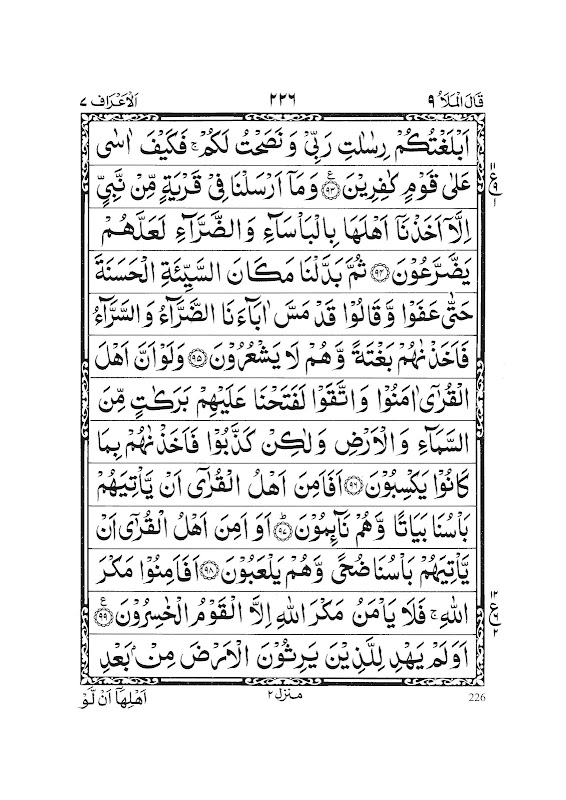 قَالَ الْمَلَاُ ٩ ٢٢٦ اَلْاَعْرَاف ٧
اَبْلَغْتُكُمْ رِسٰلٰتِ رَبِّىْ وَ نَصَحْتُ لَكُمْ ۚ فَكَيْفَ اٰسٰى
عَلٰى قَوْمٍ كٰفِرِيْنَ ۧ﴿۹۳﴾ وَ مَاۤ اَرْسَلْنَا فِىْ قَرْيَةٍ مِّنْ نَّبِىٍّ
اِلَّاۤ اَخَذْنَاۤ اَهْلَهَا بِالْبَاْسَآءِ وَ الضَّرَّآءِ لَعَلَّهُمْ
يَضَّرَّعُوْنَ ﴿۹۴﴾ ثُمَّ بَدَّلْنَا مَكَانَ السَّيِّئَةِ الْحَسَنَةَ
حَتّٰى عَفَوْا وَّ قَالُوْا قَدْ مَسَّ اٰبَآءَنَا الضَّرَّآءُ وَ السَّرَّآءُ
فَاَخَذْنٰهُمْ بَغْتَةً وَّ هُمْ لَا يَشْعُرُوْنَ ﴿۹۵﴾ وَ لَوْ اَنَّ اَهْلَ
الْقُرٰٓى اٰمَنُوْا وَ اتَّقَوْا لَفَتَحْنَا عَلَيْهِمْ بَرَكٰتٍ مِّنَ
السَّمَآءِ وَ الْاَرْضِ وَ لٰكِنْ كَذَّبُوْا فَاَخَذْنٰهُمْ بِمَا
كَانُوْا يَكْسِبُوْنَ ﴿۹۶﴾ اَفَاَمِنَ اَهْلُ الْقُرٰٓى اَنْ يَّاْتِيَهُمْ
بَاْسُنَا بَيَاتًا وَّ هُمْ نَآئِمُوْنَ ؕ﴿۹۷﴾ اَوَ اَمِنَ اَهْلُ الْقُرٰٓى اَنْ
يَّاْتِيَهُمْ بَاْسُنَا ضُحًى وَّ هُمْ يَلْعَبُوْنَ ﴿۹۸﴾ اَفَاَمِنُوْا مَكْرَ
اللّٰهِ ۚ فَلَا يَاْمَنُ مَكْرَ اللّٰهِ اِلَّا الْقَوْمُ الْخٰسِرُوْنَ ۧ﴿۹۹﴾
اَوَ لَمْ يَهْدِ لِلَّذِيْنَ يَرِثُوْنَ الْاَرْضَ مِنْۢ بَعْدِ
١١ ع ٩ ١
١٢ ع ٦ ٢
226 منزل ٢ اَهْلِهَاۤ اَنْ لَّوْ